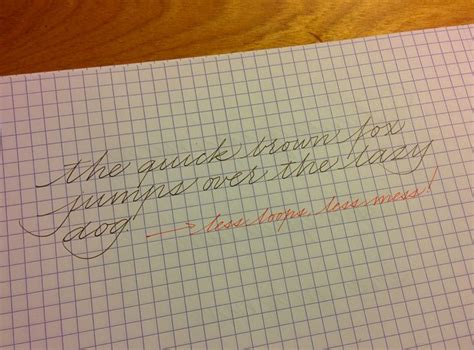 the quick brown fox
jumps over the lazy
dog
→ less loops, less mess!